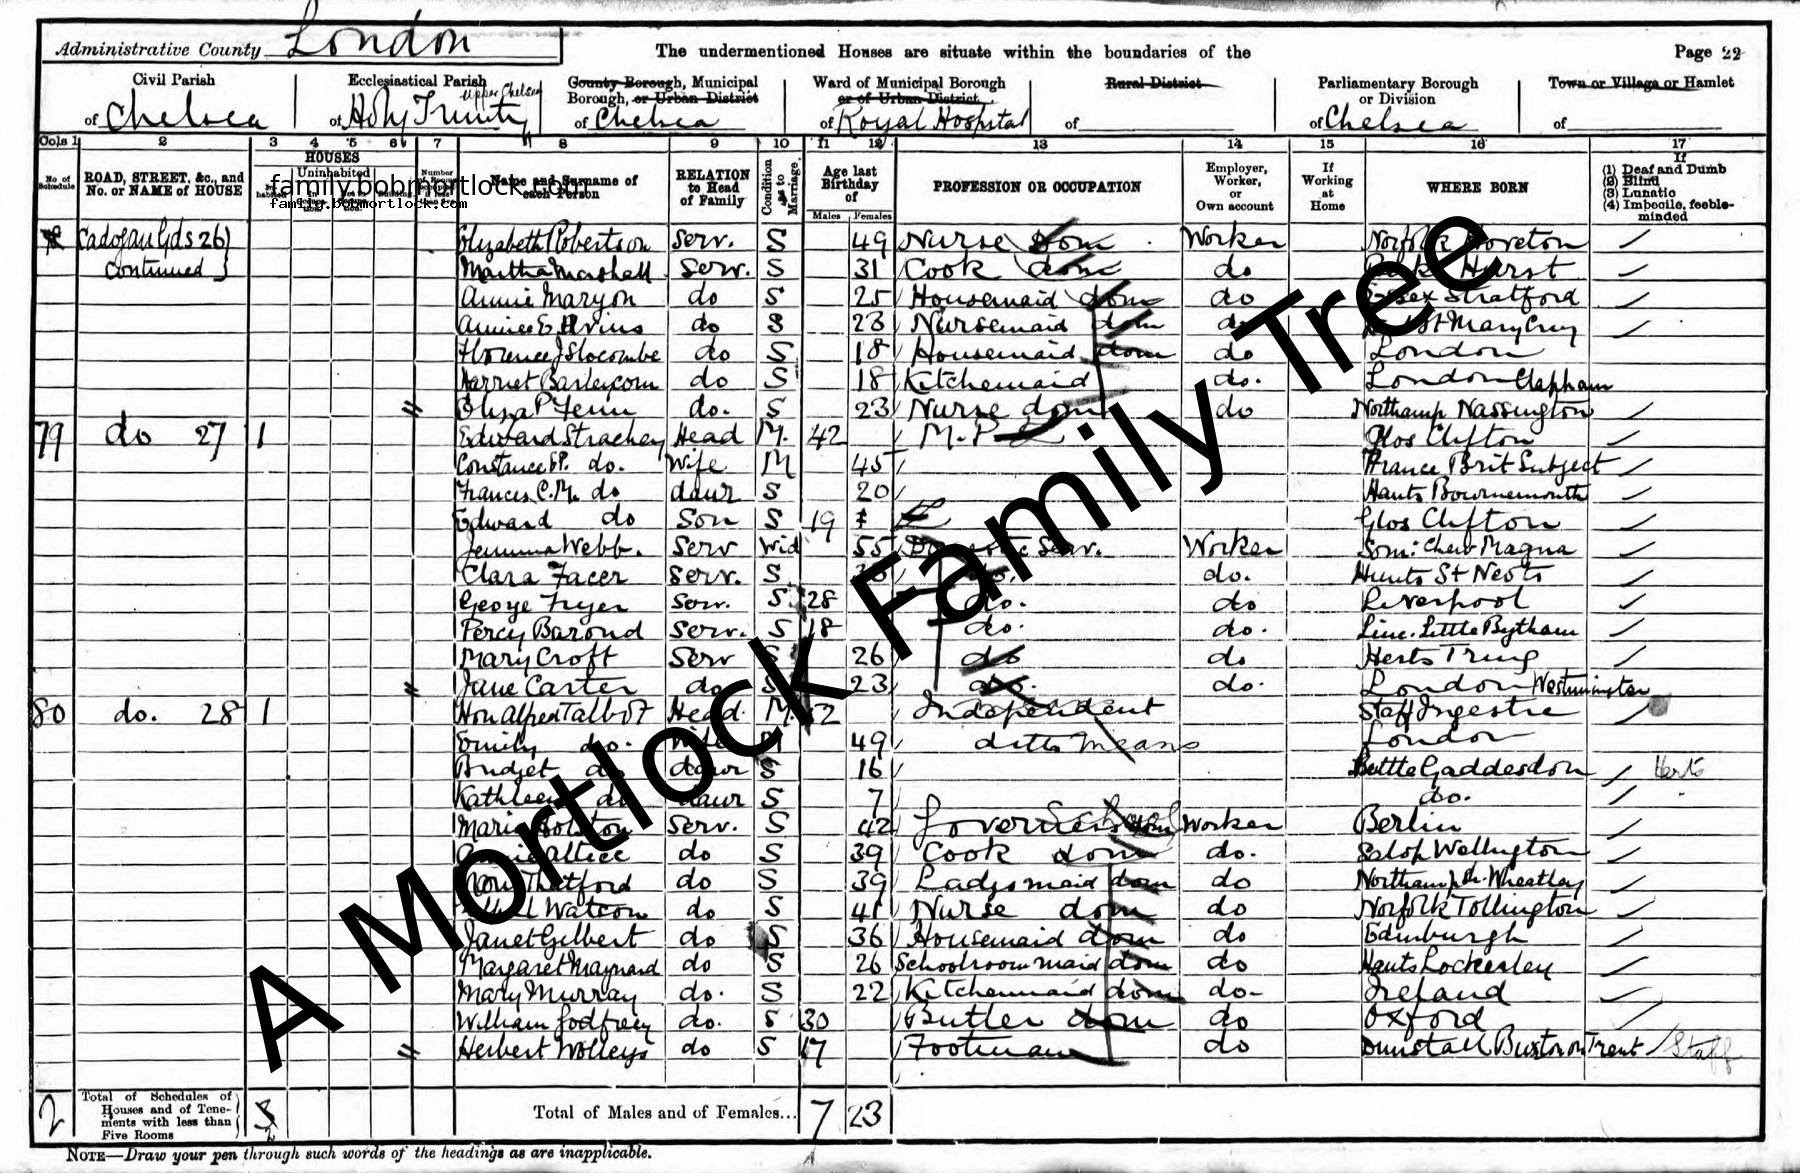 Administrative County London
The undermentioned Houses are situate within the boundaries of the
Page 22
Civil Parish of Chelsea
Ecclesiastical Parish of Holy Trinity Upper Chelsea
County Borough, Municipal Borough, or Urban District of Chelsea
Ward of Municipal Borough or of Urban District of Royal Hospital
Rural District of
Parliamentary Borough or Division of Chelsea
Town or Village or Hamlet of
Cols 1 2 3 4 5 6 7 8 9 10 11 12 13 14 15 16 17
No. of Schedule
ROAD, STREET, &c., and No. or NAME of HOUSE
HOUSES
Uninhabited
Name and Surname of each Person
RELATION to Head of Family
Condition as to Marriage
Age last Birthday of
Males Females
PROFESSION OR OCCUPATION
Employer, Worker, or Own account
If Working at Home
WHERE BORN
If (1) Deaf and Dumb (2) Blind (3) Lunatic (4) Imbecile, feeble-minded
family.bobmortlock.com
family.bobmortlock.com
Cadogan Gds 26 Elizabeth Robertson Serv. S 49 Nurse dom Worker Norfolk
continued Martha Marshall Serv. S 31 Cook dom do Hurst
Annie Maryon do S 25 Housemaid dom do Essex Stratford
Annie E do S 23 Nursemaid dom do St Mary Cray
Florence J Slocombe do S 18 Housemaid dom do London
Harriet Barleycorn do S 18 Kitchenmaid do. London Clapham
Eliza P Fenn do. S 23 Nurse dom do Northamp Nassington
79 do 27 1 Edward Strachey Head M. 42 M.P. Glos Clifton
Constance do. Wife M 45 France Brit Subject
Frances C.M. do daur S 20 Hants Bournemouth
Edward do Son S 19 Glos Clifton
Jemima Webb. Serv Wid 55 Domestic Serv. Worker Som: Chew Magna
Clara Facer Serv. S do. do. Hunts St Neots
George Fryer Serv. S 28 do. do Liverpool
Percy Barond Serv. S 18 do. do. Linc. Little Bytham
Mary Croft Serv S 26 do do Herts Tring
Jane Carter do S 23 do. do. London Westminster
80 do. 28 1 Hon Alfred Talbot Head M. 52 Independent Staff Ingestre
Emily do. Wife M 49 ditto means London
Bridget do daur S 16 Little Gaddesdon Herts
Kathleen do daur S 7 do.
Maria Holston Serv. S 42 Governess Worker Berlin
Annie do S 39 Cook dom do. Salop Wellington
Thetford do S 39 Ladys maid dom do Northampth. Wheatley
Watson do S 41 Nurse dom do Norfolk Tollington
Janet Gilbert do S 36 Housemaid dom do Edinburgh
Margaret Maynard do S 26 Schoolroom maid dom do Hants Lockerley
Mary Murray do. S 22 Kitchenmaid dom do- Ireland
William Godfrey do. S 30 Butler dom do Oxford
Herbert Wolleys do S 17 Footman do Dunstall Burton on Trent Staff
2 Total of Schedules of Houses and of Tenements with less than Five Rooms
Total of Males and of Females... 7 23
NOTE—Draw your pen through such words of the headings as are inapplicable.
A Mortlock Family Tree